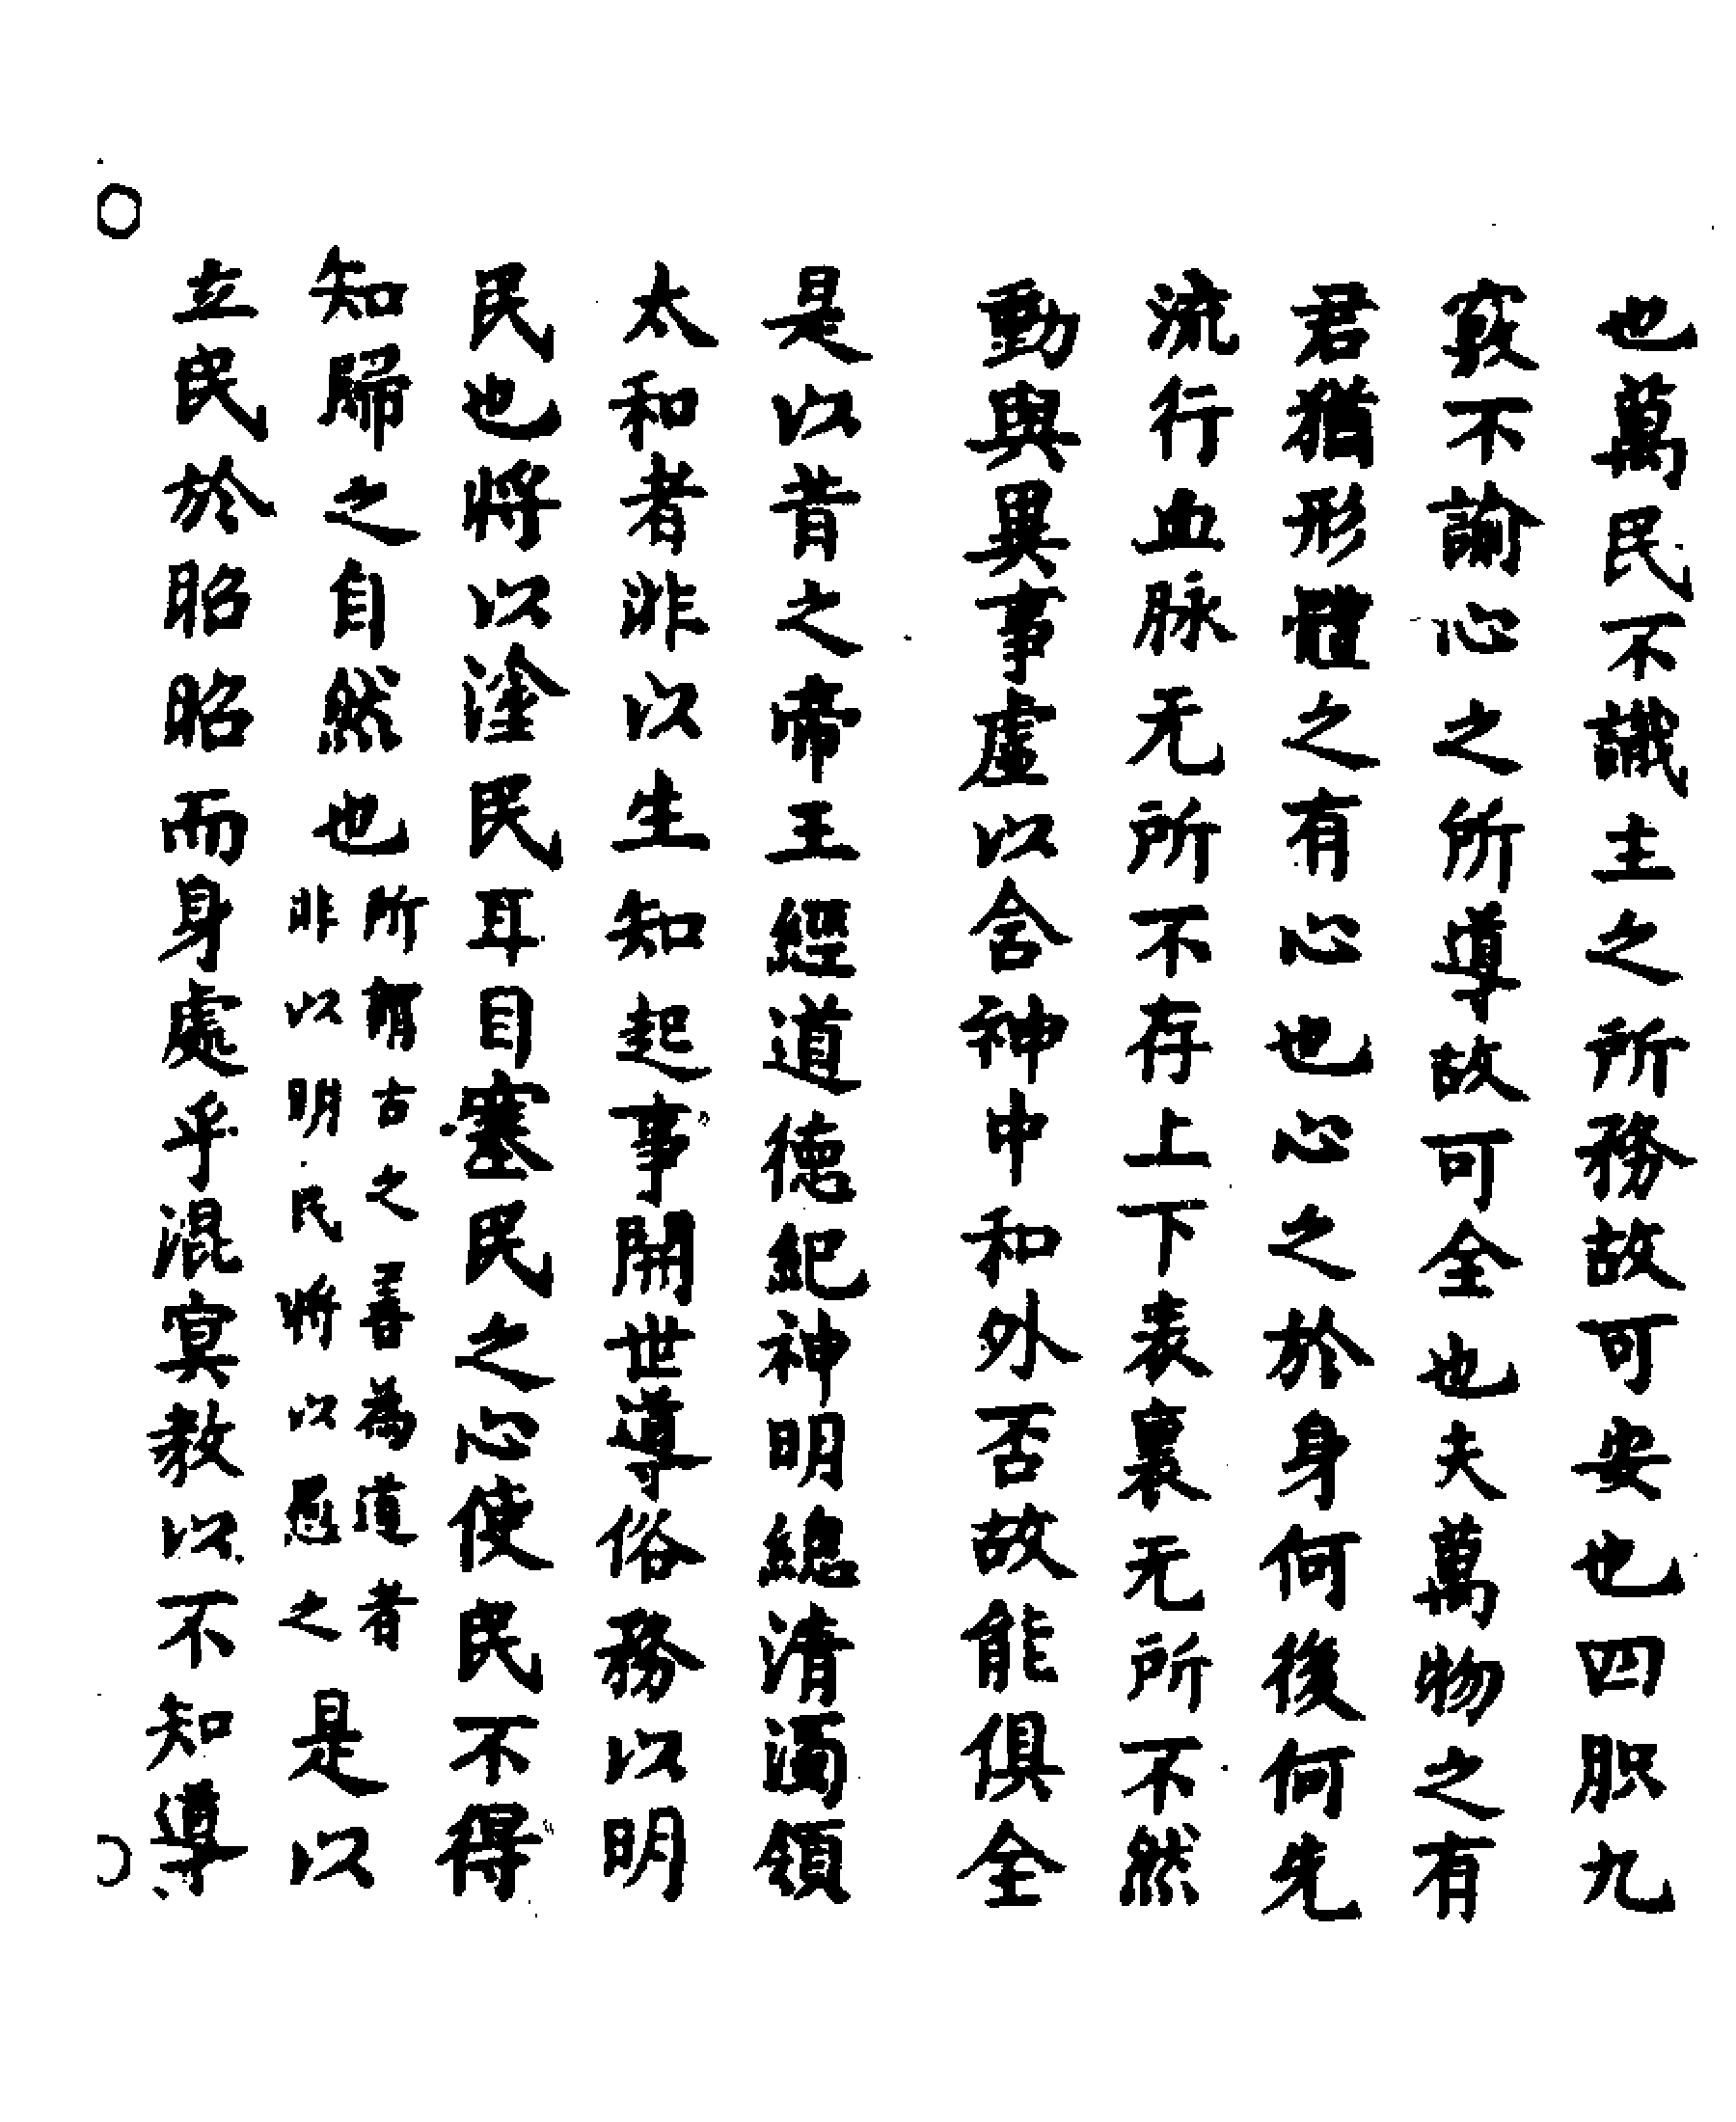 也萬民不識主之所務故可安也四肢九
竅不諭心之所導故可全也夫萬物之有
君猶形體之有心也心之於身何後何先
流行血脉无所不存上下表裏无所不然
動與異事虛以含神中和外否故能俱全
是以昔之帝王經道德紀神明總清濁領
太和者非以生知起事開世導俗務以明
民也將以塗民耳目塞民之心使民不得
知歸之自然也所謂古之善為道者非以明民將以愚之是以
立民於昭昭而身處乎混冥教以不知導